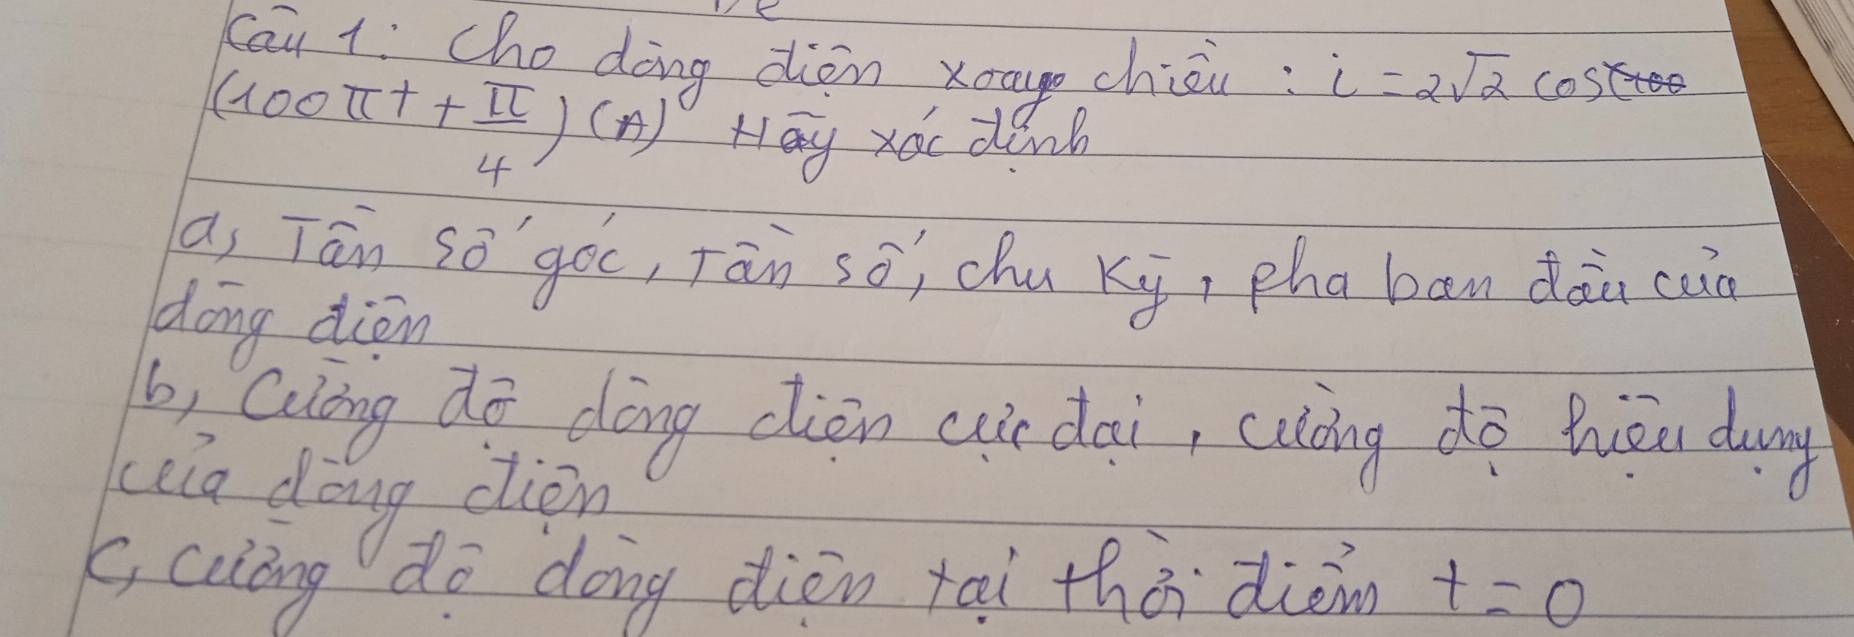 Câu 1: Cho dòng điện xoay chiều : i = 2√2 cos
(100πt + π/4) (A) Hãy xác định
a, Tần số góc, Tần số, chu kỳ, pha ban đầu của
dòng điện
b, Cường độ dòng điện cực đại, cường độ hiệu dụng
của dòng điện
c, cường độ dòng điện tại thời điểm t = 0